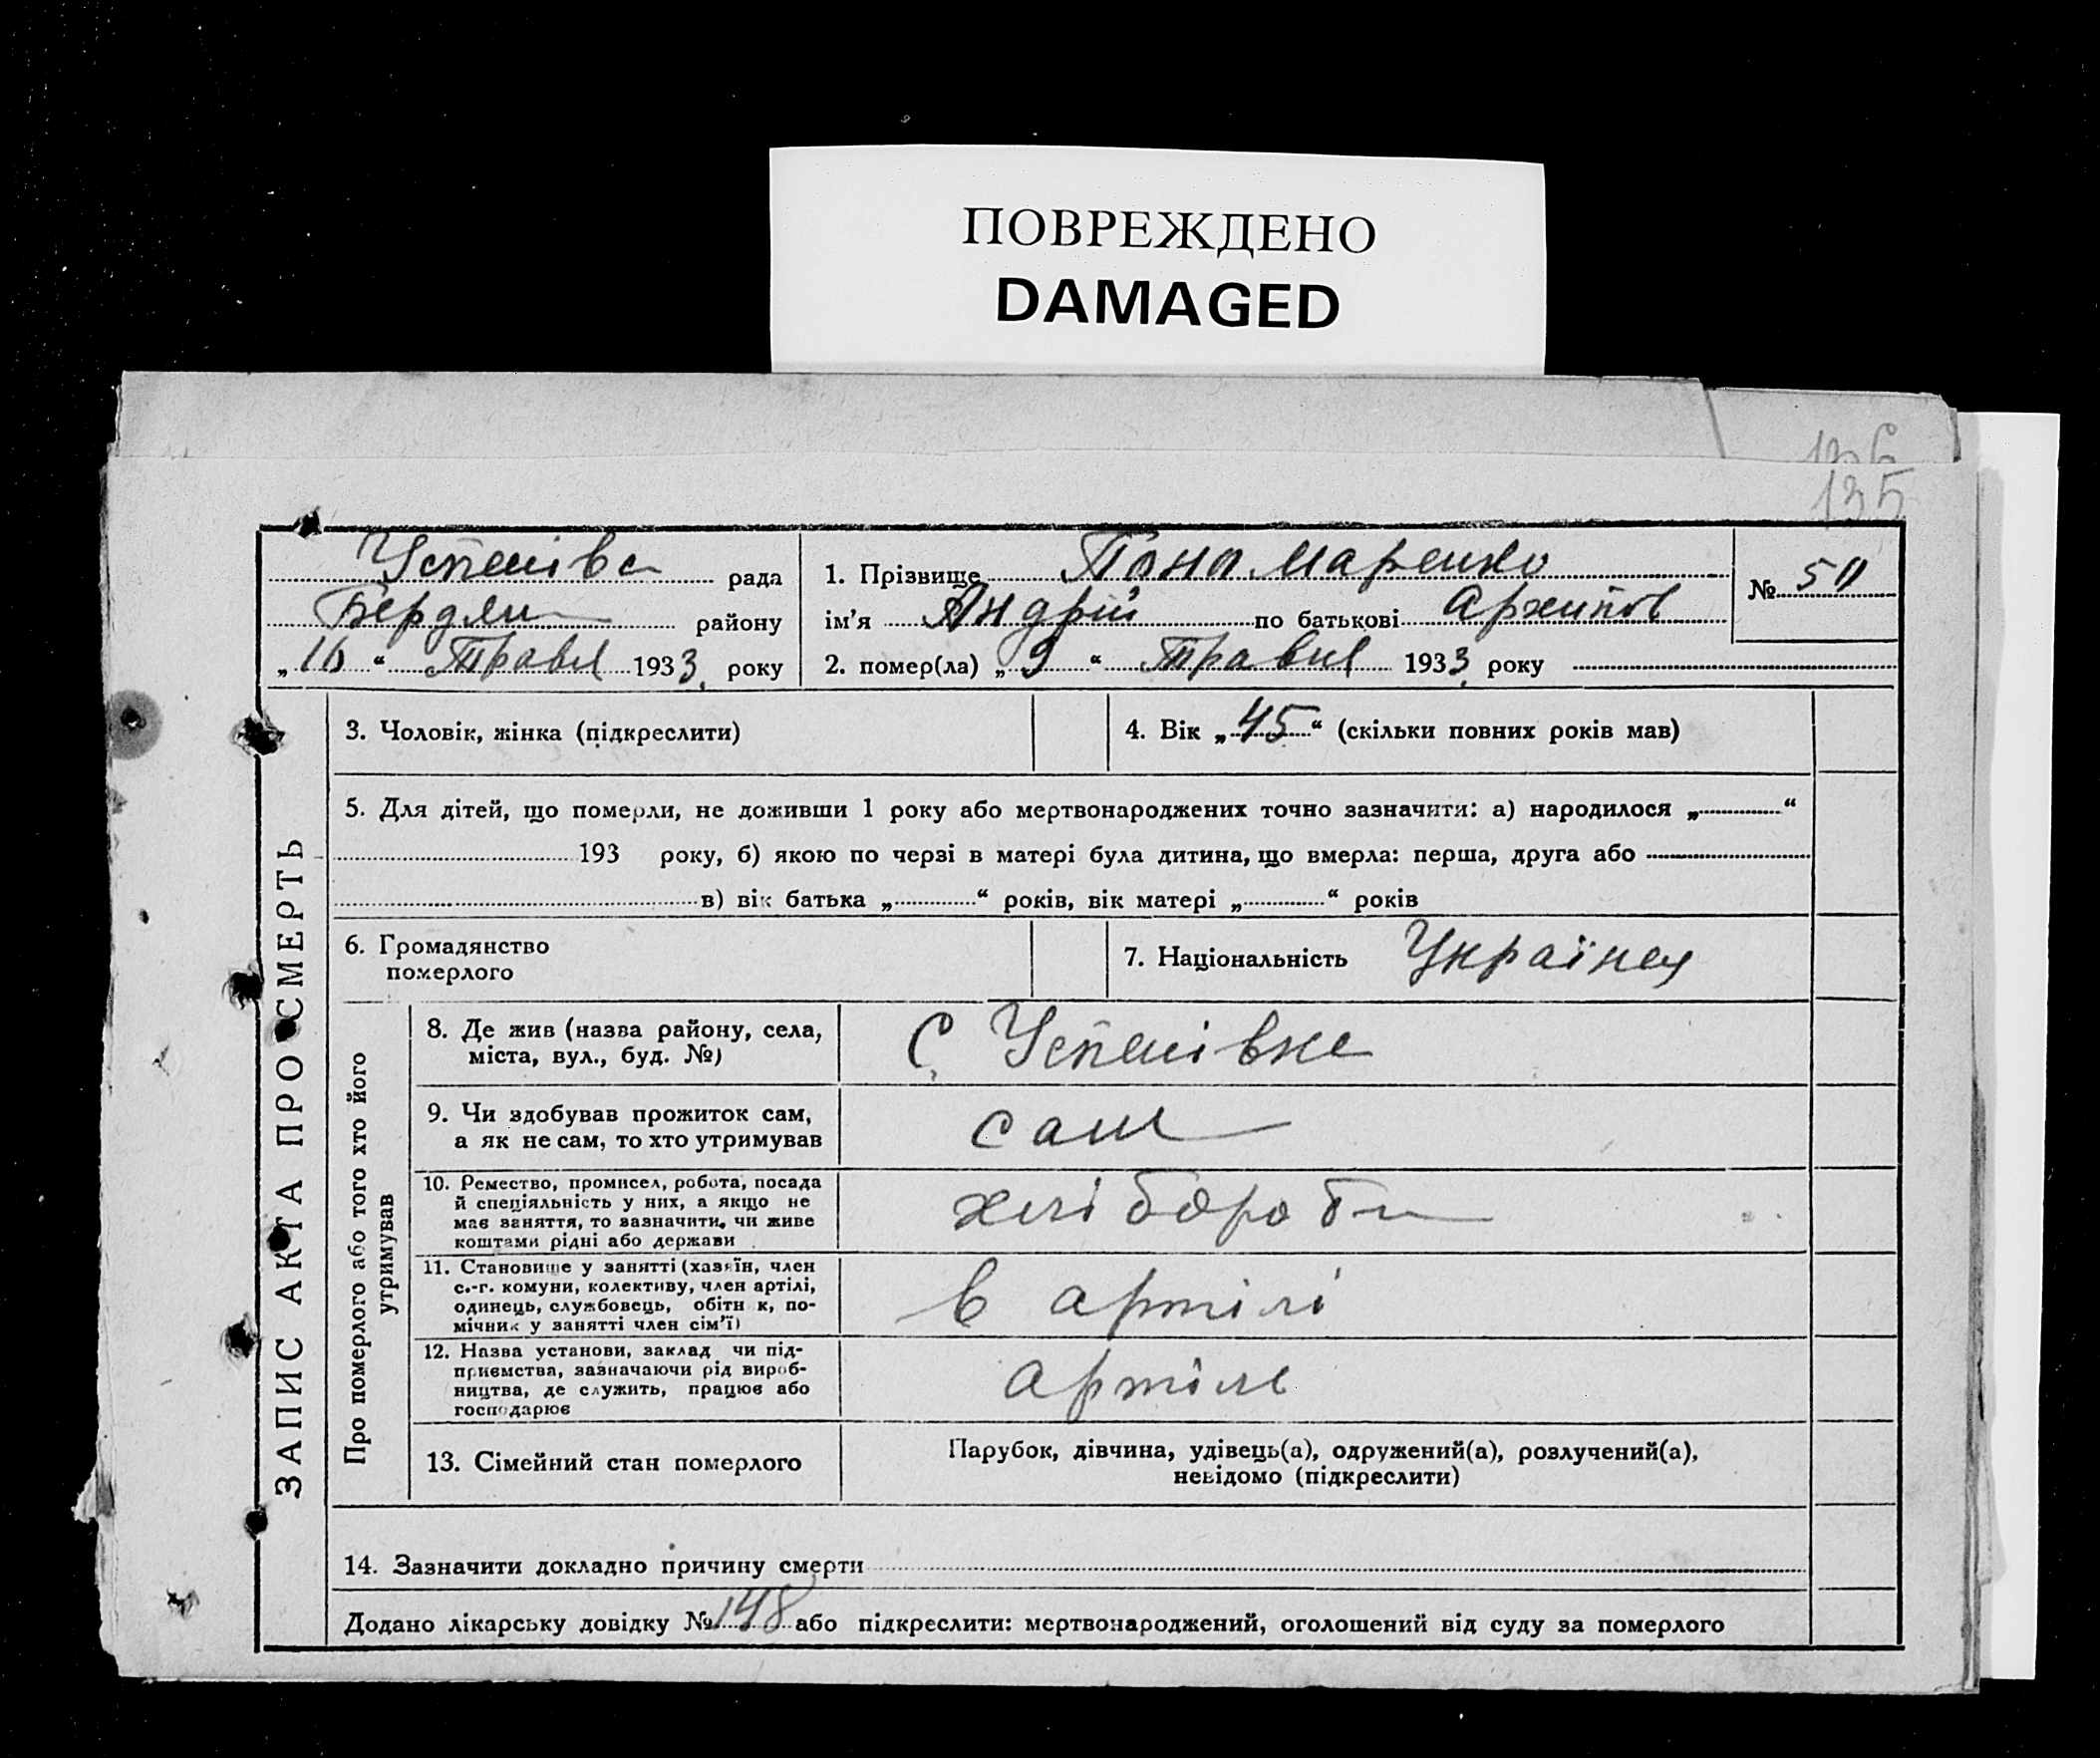 ПОВРЕЖДЕНО
DAMAGED
135
Успенівс рада
Бердян району
„16“ Травня 1933 року
1. Прізвище Пономаренко
ім’я Андрій по батькові Архипов
2. помер(ла) „9“ Травня 1933 року
№ 50
ЗАПИС АКТА ПРО СМЕРТЬ
3. Чоловік, жінка (підкреслити)
4. Вік „45“ (скільки повних років мав)
5. Для дітей, що померли, не доживши 1 року або мертвонароджених точно зазначити: а) народилося „ “
193 року, б) якою по черзі в матері була дитина, що вмерла: перша, друга або
в) вік батька „ “ років, вік матері „ “ років
6. Громадянство
померлого
7. Національність Українец
Про померлого або того хто його
утримував
8. Де жив (назва району, села,
міста, вул., буд. №)
С. Успенівка
9. Чи здобував прожиток сам,
а як не сам, то хто утримував
сам
10. Ремество, промисел, робота, посада
й спеціяльність у них, а якщо не
має заняття, то зазначити, чи живе
коштами рідні або держави
хлібороб
11. Становище у занятті (хазяїн, член
с.-г. комуни, колективу, член артілі,
одинець, службовець, обітн к, по-
мічник у занятті член сім’ї)
в артілі
12. Назва установи, заклад чи під-
приємства, зазначаючи рід вироб-
ництва, де служить, працює або
господарює
артіль
13. Сімейний стан померлого
Парубок, дівчина, удівець(а), одружений(а), розлучений(а),
невідомо (підкреслити)
14. Зазначити докладно причину смерти
Додано лікарську довідку № 148 або підкреслити: мертвонароджений, оголошений від суду за померлого